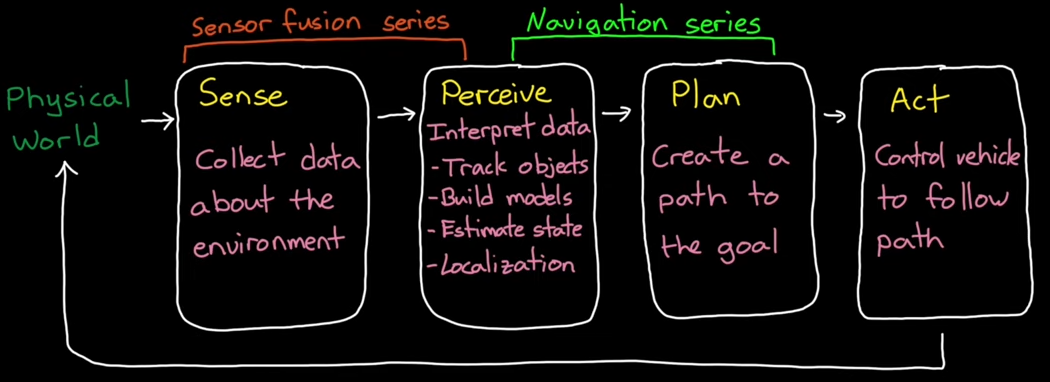 Sensor fusion series
Navigation series
Physical
World
Sense
Collect data
about the
environment
Perceive
Interpret data
-Track objects
-Build models
-Estimate state
-Localization
Plan
Create a
path to
the goal
Act
Control vehicle
to follow
path